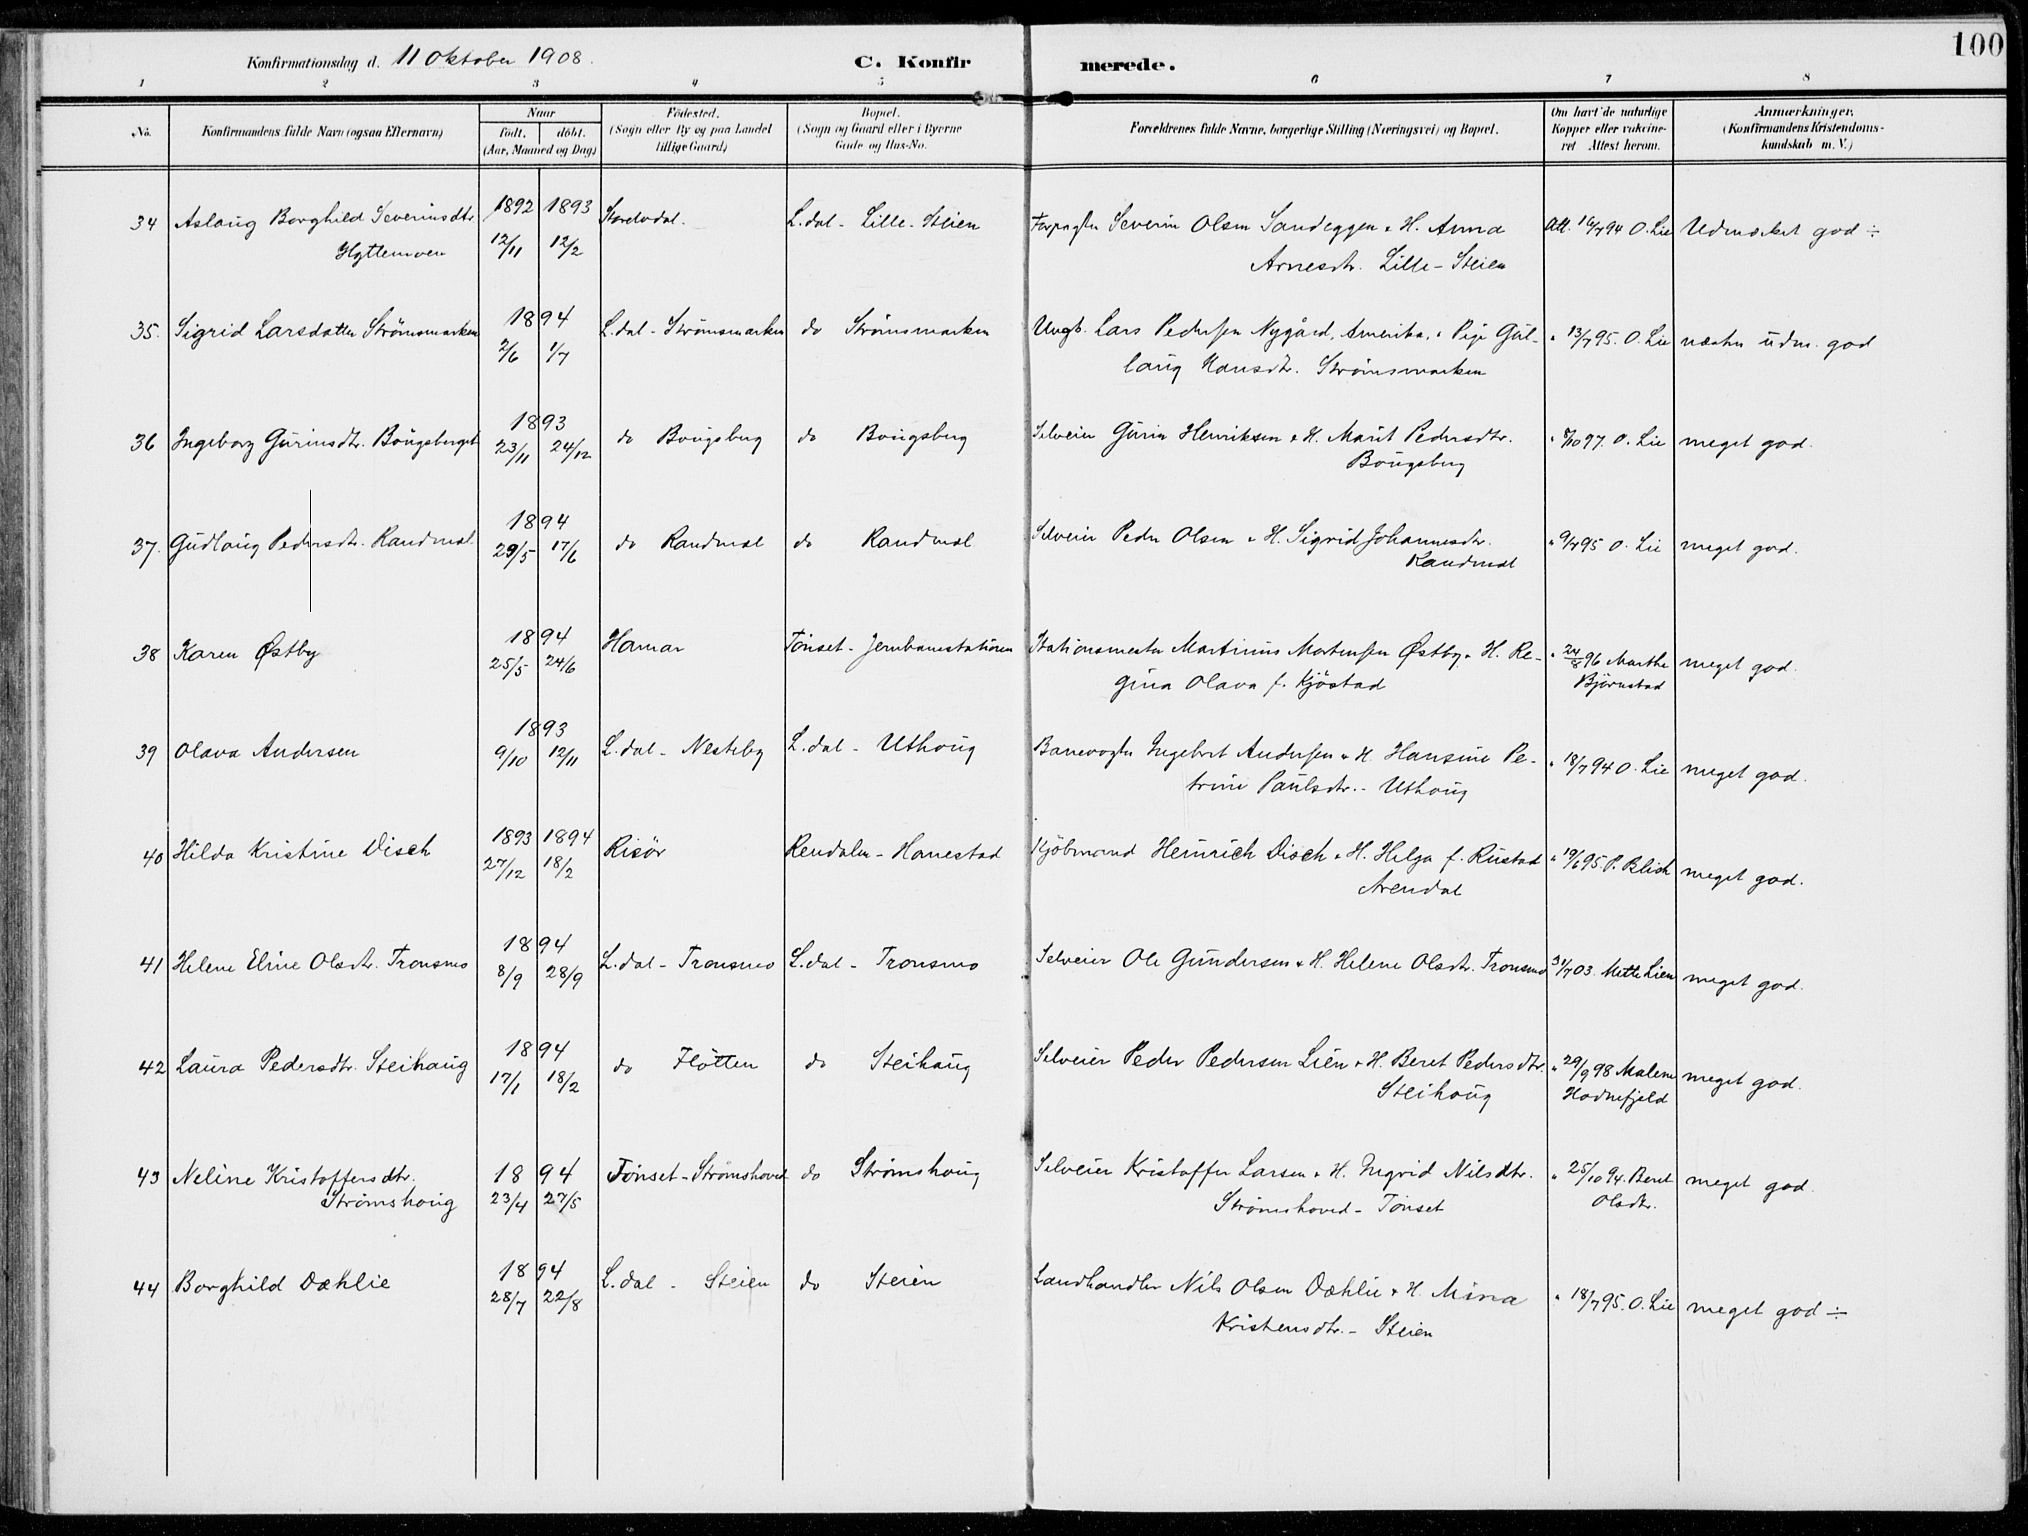 100
Konfirmationsdag d. 11 Oktober 1908.
C. Konfirmerede.
1 2 3 4 5 6 7 8
No. Konfirmandens fulde Navn (ogsaa Efternavn) Naar födt, döbt. (Aar, Maaned og Dag) Födested. (Sogn eller By og paa Landet tillige Gaard) Bopæl. (Sogn og Gaard eller i Byerne Gade og Hus-No. Forældrenes fulde Navne, borgerlige Stilling (Næringsvei) og Bopæl. Om havt de naturlige Kopper eller vakcineret Attest herom. Anmærkninger. (Konfirmandens Kristendomskundskab m. V.)
34 Aslaug Borghild Severinsdtr. 1892 1893 L.dal - Lille-Steien Forpagter Severin Olsen Sandeggen & H. Anna Att. 16/7 94 O. Lie Udmærket god ÷
Hyttemoen 12/11 12/2 Arnesdtr. Lille-Steien
35. Sigrid Larsdatter Strömsmarken 1894 L.dal - Strömsmarken do Strömsmarken Ungk. Lars Pedersen Nygård, Amerika, & Pige Gül- " 13/7 95. O. Lie næsten udm. god
2/6 1/7 laug Hansdtr. Strömsmarken
36 Ingeborg Gurinsdtr. Bougsberget 1893 do Bougsberg do Bougsberg Selveier Gurin Henriksen & H. Marit Pedersdtr. " 8/10 97. O. Lie meget god.
23/11 24/12 Bougsberg
37. Gudlaug Pedersdtr. Randmæl 1894 do Randmæl do Randmæl Selveier Peder Olsen & H. Sigrid Johannesdtr. " 9/7 95 O. Lie meget god.
29/5 17/6 Randmæl
38 Karen Østby 1894 Hamar Tönset - Jernbanestationen Stationsmester Martinius Mortensen Østby & H. Re- " 24/8 96 Marthe meget god.
25/5 24/6 gina Olava f. Kjöstad Björnstad
39 Olava Andersen 1893 L.dal - Nesteby L.dal - Uthoug Banevogter Ingebret Andersen & H. Hansine Pe- " 18/7 94 O. Lie meget god.
9/10 12/11 trine Paulsdtr. - Uthoug
40 Hilda Kristine Disch 1893 1894 Risör Rendalen - Hanestad Kjöbmand Heinrich Disch & H. Helga f. Rustad " 19/6 95 P. Blich meget god.
27/12 18/2 Arendal
41 Helene Eline Olsdtr. Tronsmo 1894 L.dal - Tronsmo L.dal - Tronsmo Selveier Ole Gundersen & H. Helene Olsdtr. Tronsmo 31/7 03. Mette Lien meget god.
8/9 28/9
42 Laura Pedersdtr. Steihaug 1894 do Flötten do Steihaug Selveier Peder Pedersen Lien & H. Beret Pedersdtr. " 29/9 98 Malene meget god.
17/1 18/2 Steihoug Hodnefjeld
43 Neline Kristoffersdtr. 1894 Tönset - Strömshoved do Strömshoug Selveier Kristoffer Larsen & H. Ingrid Nilsdtr. " 25/10 94. Beret meget god.
Strömshoug 23/4 27/5 Strömshoved - Tönset Olsdtr.
44 Borghild Dæhlie 1894 L.dal - Steien do Steien Landhandler Nils Olsen Dæhlie & H. Mina " 18/7 95. O. Lie meget god ÷
28/7 22/8 Kristensdtr. - Steien